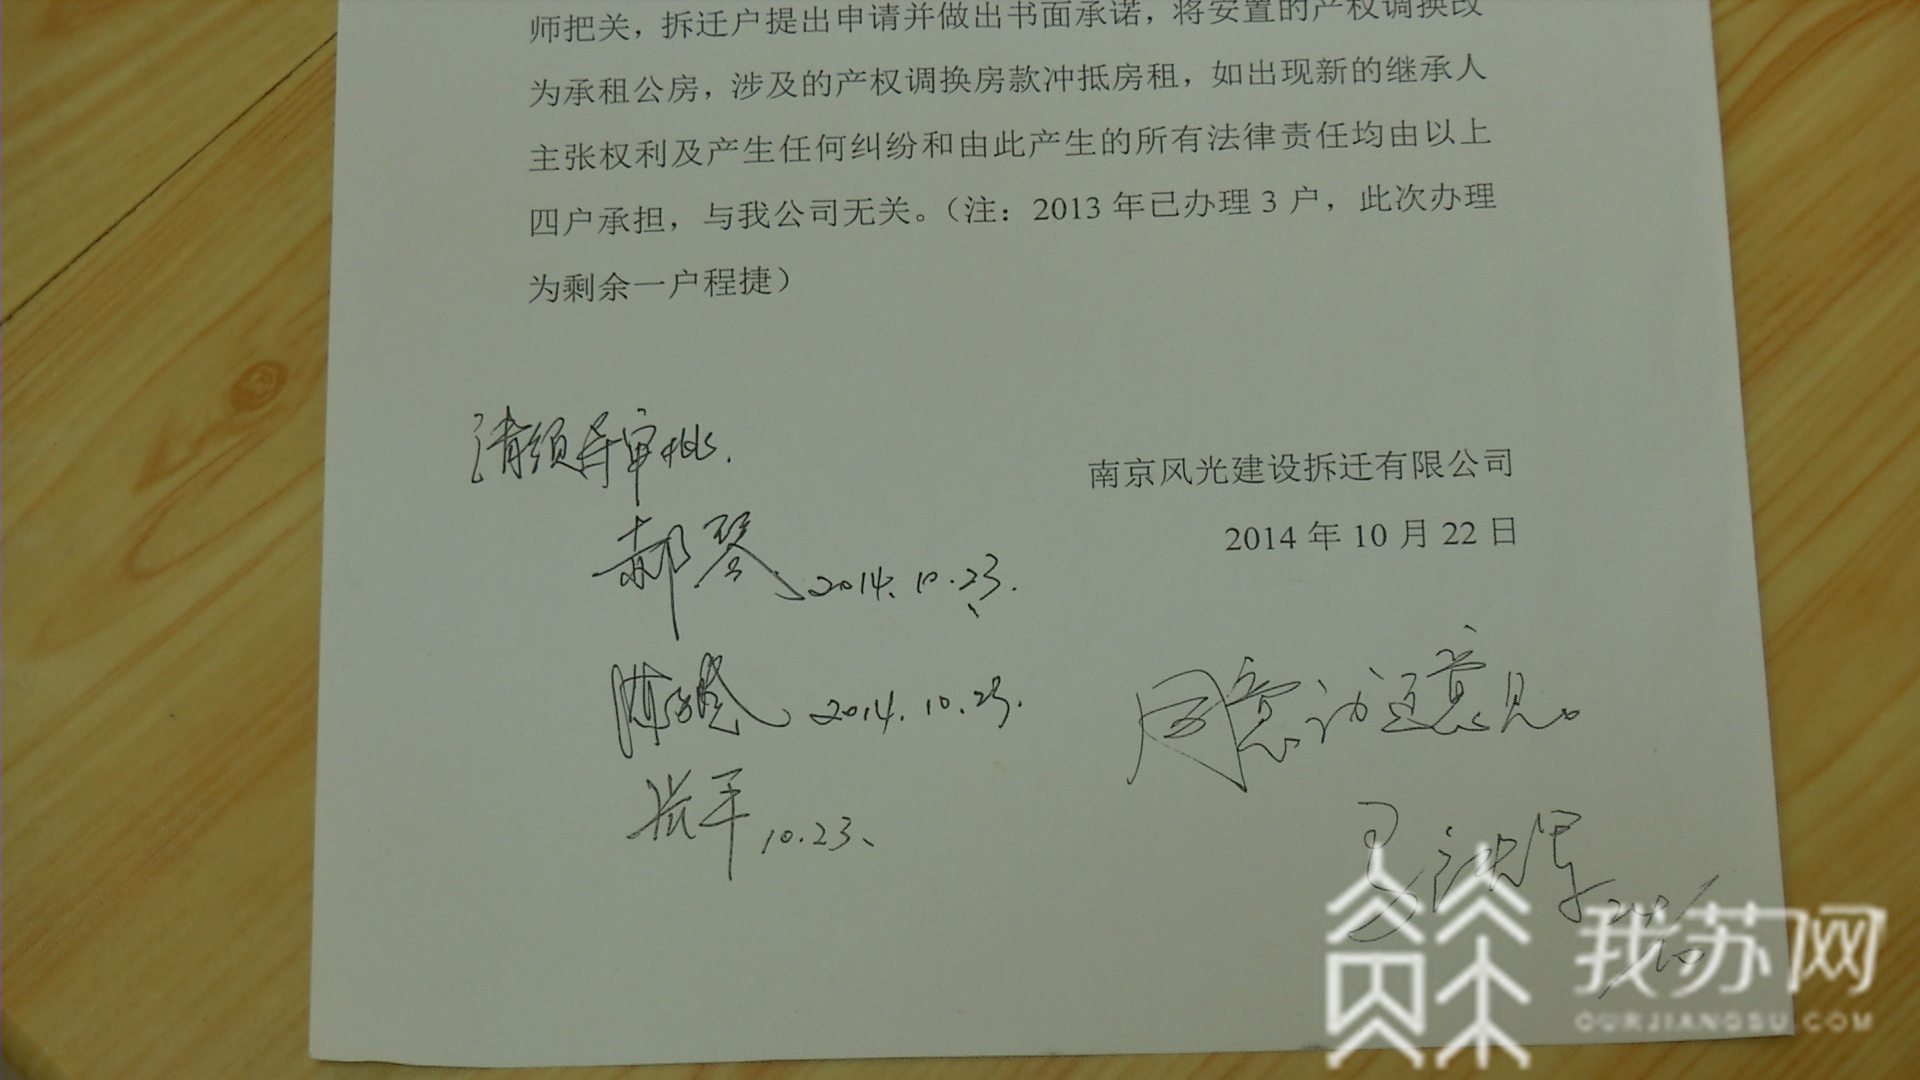 师把关，拆迁户提出申请并做出书面承诺，将安置的产权调换改
为承租公房，涉及的产权调换房款冲抵房租，如出现新的继承人
主张权利及产生任何纠纷和由此产生的所有法律责任均由以上
四户承担，与我公司无关。（注：2013 年已办理 3 户，此次办理
为剩余一户程捷）
请领导审批.
南京风光建设拆迁有限公司
2014 年 10 月 22 日
郝琴 2014.10.23.
2014.10.23.
张平 10.23、
同意认证意见。
我苏网
OURJIANGSU.COM